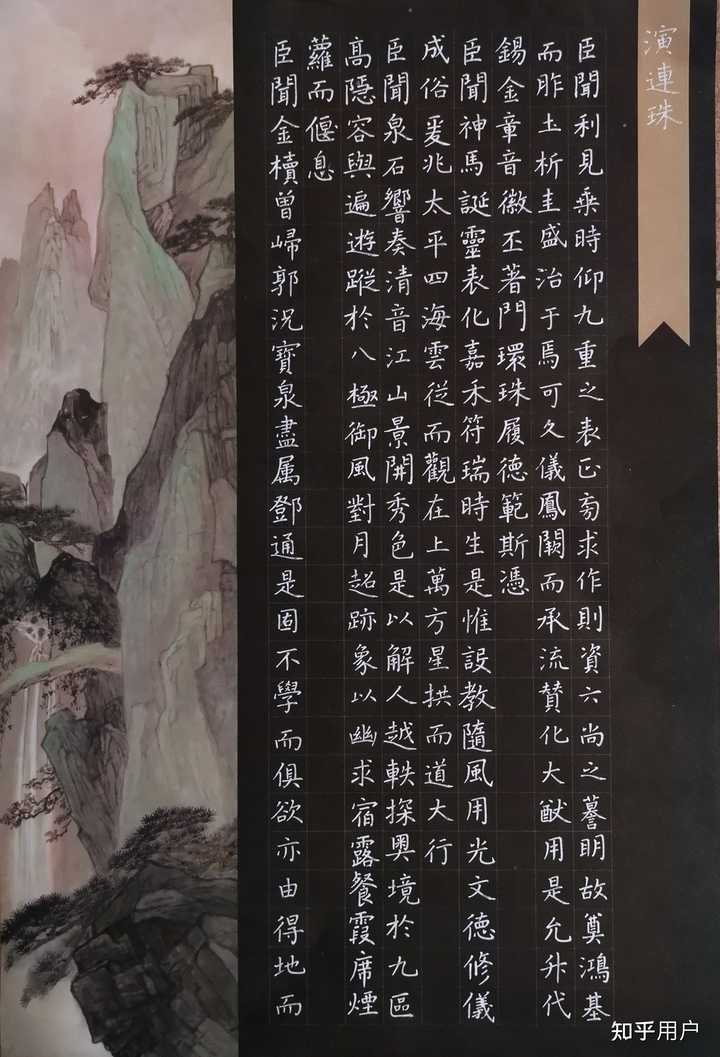 演連珠
臣聞利見乗時仰九重之表正旁求作則資六尚之謩明故奠鴻基
而胙土析圭盛治于焉可久儀鳳闕而承流賛化大猷用是允升代
錫金章音徽丕著門環珠履德範斯憑
臣聞神馬誕靈表化嘉禾符瑞時生是惟設教隨風用光文德修儀
成俗爰兆太平四海雲從而觀在上萬方星拱而道大行
臣聞泉石響奏清音江山景開秀色是以解人越軼探奧境於九區
高隱容與遍遊蹤於八極御風對月超跡象以幽求宿露餐霞席煙
蘿而偃息
臣聞金櫝曾歸郭況寶泉盡属鄧通是固不學而俱欲亦由得地而
知乎用户